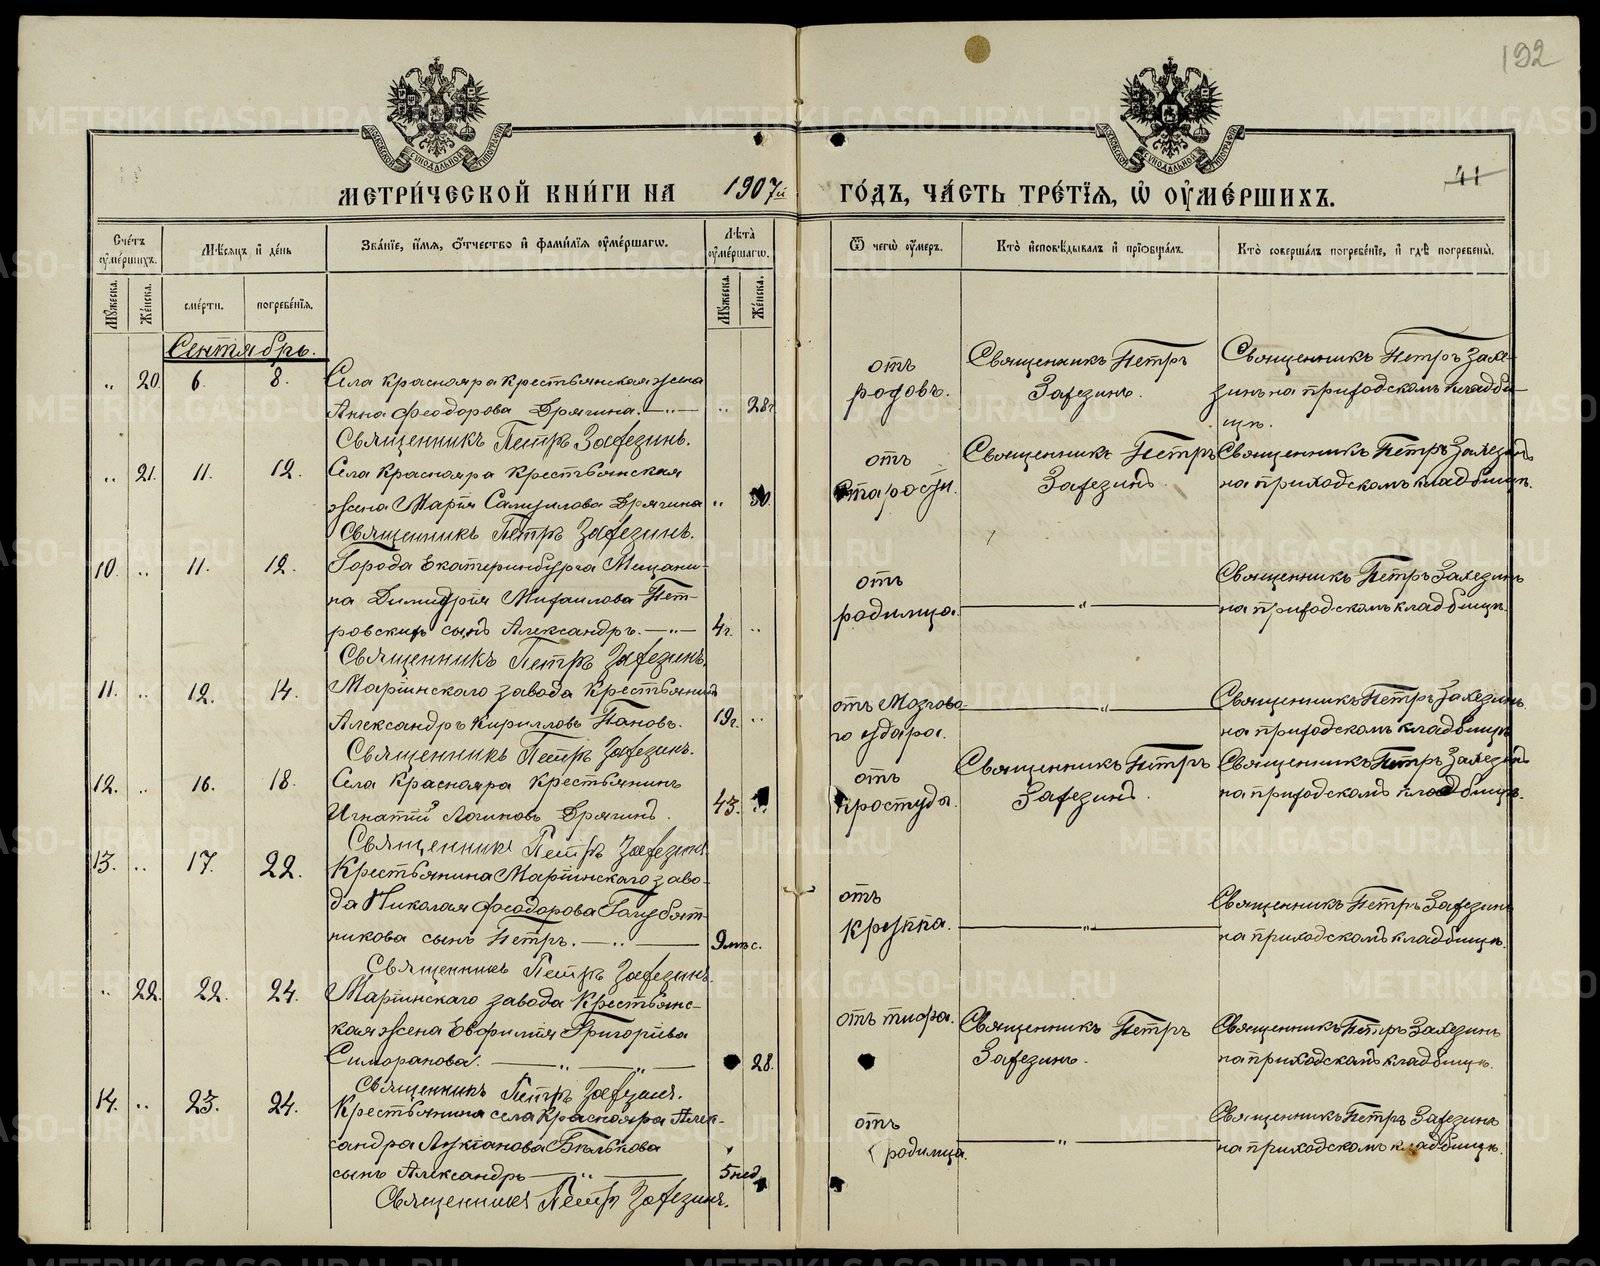 192
МЕТРИ́ЧЕСКОЙ КНИ́ГИ НА 1907й ГО́ДЪ, ЧА́СТЬ ТРЕ́ТЇѦ, Ѡ҆ ОУ҆МЕ́РШИХЪ.
41
Сче́тъ оу҆ме́ршихъ.
Мѣ́сѧцъ и҆ де́нь
Зва́нїе, и҆́мѧ, ѻ҆́тчество и҆ фами́лїѧ оу҆ме́ршагѡ.
Лѣ́та оу҆ме́ршагѡ.
Ѿ чегѡ̀ оу҆́меръ.
Кто̀ и҆сповѣ́дывалъ и҆ прїѡбща́лъ.
Кто̀ соверша́лъ погребе́нїе, и҆ гдѣ̀ погребены̀.
Мꙋ́жеска.
Же́нска.
сме́рти.
погребе́нїѧ.
Мꙋ́жеска.
Же́нска.
Сентябрь.
„ 20. 6. 8. Села Краснояра крестьянская жена
Анна Феодорова Дрягина. — „ — „ 28г.
Священникъ Петръ Заѳезинъ.
отъ
родовъ.
Священникъ Петръ
Заѳезинъ.
Священникъ Петръ Заѳе-
зинъ на приходскомъ кладби-
щѣ.
„ 21. 11. 12. Села Краснояра крестьянская
жена Марія Самуилова Дрягина „ 80.
Священникъ Петръ Заѳезинъ.
отъ
старости.
Священникъ Петръ
Заѳезинъ.
Священникъ Петръ Заѳезинъ
на приходскомъ кладбищѣ.
10. „ 11. 12. Города Екатеринбурга Мещани-
на Димитрія Михаилова Пет-
ровскихъ сынъ Александръ. — „ — 4г. „
Священникъ Петръ Заѳезинъ.
отъ
родимца.
„
Священникъ Петръ Заѳезинъ
на приходскомъ кладбищѣ.
11. „ 12. 14. Маріинскаго завода крестьянинъ
Александръ Кирилловъ Пановъ. 19г. „
Священникъ Петръ Заѳезинъ.
отъ Мозгова-
го удара.
„
Священникъ Петръ Заѳезинъ.
на приходскомъ кладбищѣ
12. „ 16. 18. Села Краснояра крестьянинъ
Игнатій Логиновъ Дрягинъ. 43. „
Священникъ Петръ Заѳезинъ.
отъ
простуды.
Священникъ Петръ
Заѳезинъ.
Священникъ Петръ Заѳезинъ
на приходскомъ кладбищѣ.
13. „ 17. 22. Крестьянина Маріинскаго заво-
да Николая Феодорова Голубят-
никова сынъ Петръ. — „ — 9 мѣс.
Священникъ Петръ Заѳезинъ.
отъ
круппа.
„
Священникъ Петръ Заѳезинъ
на приходскомъ кладбищѣ.
„ 22. 22. 24. Маріинскаго завода Крестьянс-
кая жена Евфимія Григоріева
— „ — „ — 28.
Священникъ Петръ Заѳезинъ.
отъ тифа.
Священникъ Петръ
Заѳезинъ.
Священникъ Петръ Заѳезинъ
на приходскомъ кладбищѣ.
14. „ 23. 24. Крестьянина села Краснояра Алек-
сандра Лукіанова Бѣлькова
сынъ Александръ — „ — 5 нед.
Священникъ Петръ Заѳезинъ.
отъ
родимца.
„
Священникъ Петръ Заѳезинъ
на приходскомъ кладбищѣ.
METRIKI.GASO-URAL.RU